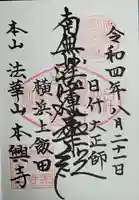 令和四年八月二十一日
日什大正師
南無妙法蓮華経
横浜上飯田
本山 法華山 本興寺